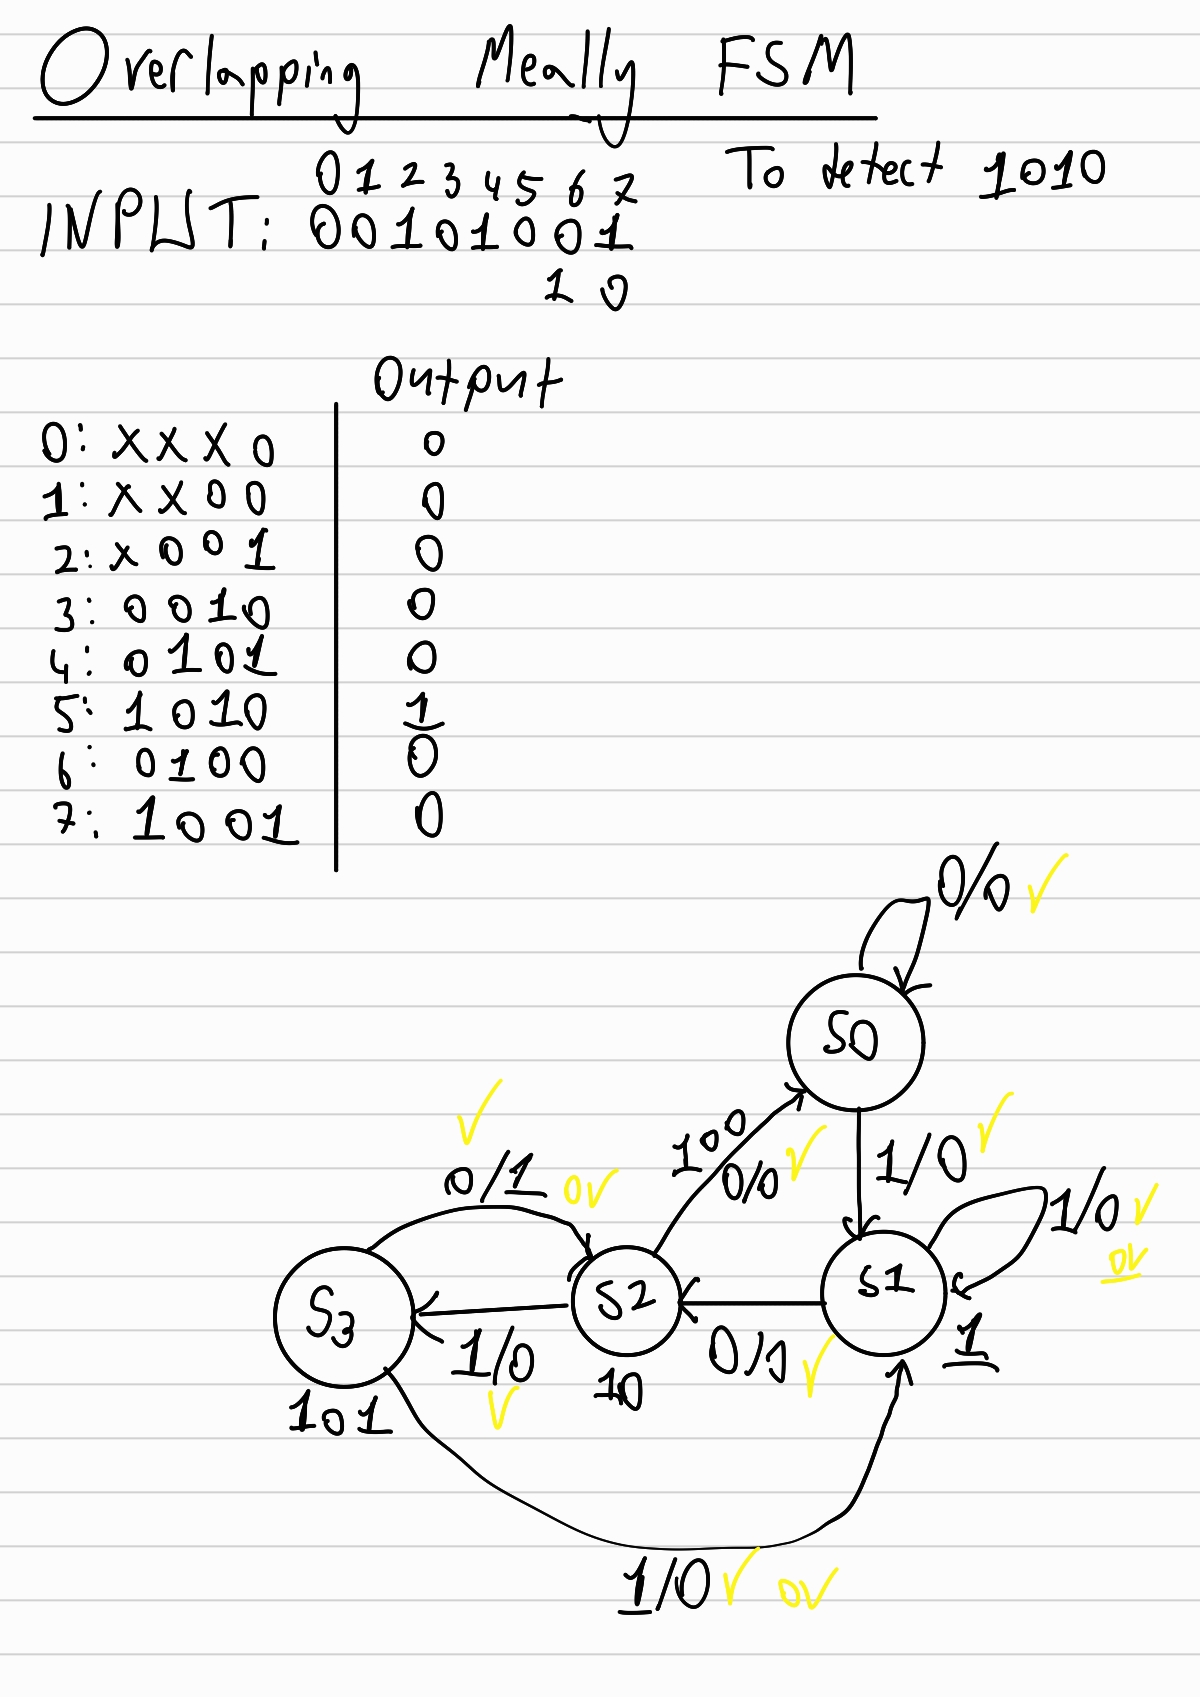 Overlapping Meally FSM
To detect 1010
0 1 2 3 4 5 6 7
INPUT: 0 0 1 0 1 0 0 1
1 0
Output
0: X X X 0 0
1: X X 0 0 0
2: X 0 0 1 0
3: 0 0 1 0 0
4: 0 1 0 1 0
5: 1 0 1 0 1
6: 0 1 0 0 0
7: 1 0 0 1 0
0/0
S0
100
0/0
1/0
0/1 ov
1/0
ov
S3
S2
S1
1/0
0/0
1
101
10
1/0 ov